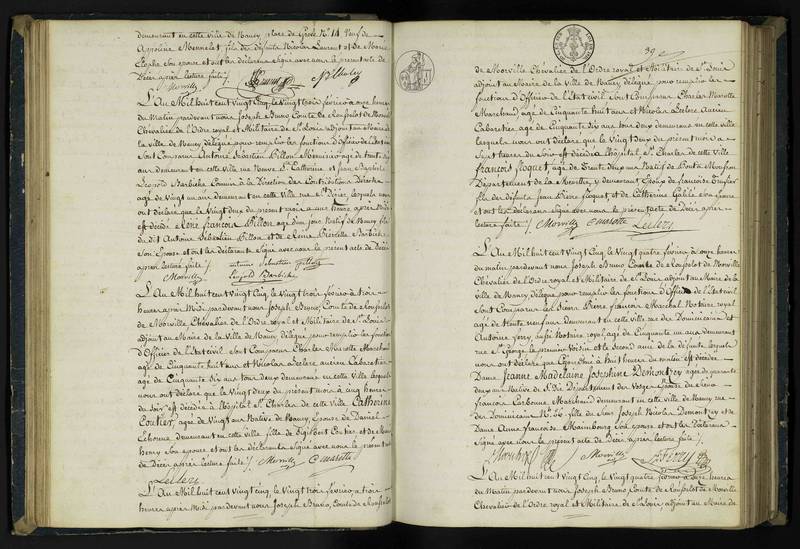 demeurant en cette ville de Nancy place de Grève N.º 14 veuf de
Appoline Mennelet, fils des défunts Nicolas Laurent et de Marie
son épouse et ont les déclarans signé avec nous le présent acte de
Décès après lecture faite /.
Morville
L'An Mil huit cent vingt Cinq, le vingt trois février à onze heures
du Matin pardevant nous Joseph Bruno Comte de Rouflot de Morville
Chevalier de l'Ordre royal et Militaire de St Louis adjoint au Maire de
la ville de Nancy délégué pour remplir les fonctions d'Officier de l'Etat civil
Sont Comparus Antoine Sébastien Pillon Menuisier agé de trente six
ans demeurant en cette ville rue Neuve Ste Catherine et Jean Baptiste
Léopold Barbiche Commis à la Direction des Contributions Directes
agé de vingt un ans demeurant en cette ville rue St Dizier, lesquels nous
ont déclaré que le vingt deux du présent mois à une heure après Midi
est décédé René François Pillon agé d'un jour Natif de Nancy fils
du dit Antoine Sébastien Pillon et de Reine Pierrette Barbiche
Son Epouse et ont les déclarants Signé avec nous le présent acte de Décès
après lecture faite /.
antoine Sebastien Pillon
Morville
Léopold Barbiche
L'An Mil huit cent vingt Cinq, le vingt trois février à trois
heures après Midi pardevant nous Joseph Bruno, Comte de Rouflot
de Morville Chevalier de l'Ordre royal et Militaire de St Louis
adjoint au Maire de la ville de Nancy délégué pour remplir les fonctions
d'Officier de l'Etat civil Sont Comparus Charles Marotte Marchand
agé de Cinquante huit ans et Nicolas Leclerc ancien Cabaretier
agé de Cinquante dix ans tous deux demeurans en cette ville lesquels
nous ont déclaré que le vingt deux du présent mois à cinq heures
du Soir est décédée à l'hôpital St Charles de cette ville Catherine
Coutier, agée de vingt ans Native de Nancy, Epouse de Daniel
demeurant en cette ville fille de Sigisbert Coutier et de Nancy
henry Son épouse et ont les déclarants Signé avec nous le présent acte
de Décès après lecture faite /. Morville C marotte
Leclerc
L'An Mil huit cent vingt Cinq, le vingt trois février à trois
heures après Midi pardevant nous Joseph Bruno, Comte de Rouflot
39
de Morville Chevalier de l'Ordre royal et Militaire de St Louis
adjoint au Maire de la ville de Nancy, délégué pour remplir les
fonctions d'Officier de l'Etat civil Sont Comparus Charles Marotte
Marchand agé de Cinquante huit ans et Nicolas Leclerc ancien
Cabaretier agé de Cinquante dix ans tous deux demeurans en cette ville
lesquels nous ont déclaré que le vingt deux du présent mois à
Sept heures du Soir est décédé à l'hôpital St Charles de cette ville
François Floquet, agé de trente deux ans Natif de Pont à Mousson
Département de la Meurthe, y demeurant Epoux de françoise
fils des défunts Jean Pierre Floquet et de Catherine Son Epouse
et ont les déclarans signé avec nous le présent acte de Décès après
lecture faite /. Morville C marotte Leclerc
L'An Mil huit cent vingt Cinq, le vingt quatre février à onze heures
du Matin pardevant nous Joseph Bruno Comte de Rouflot de Morville
Chevalier de l'Ordre royal et Militaire de St Louis, adjoint au Maire de la
ville de Nancy délégué pour remplir les fonctions d'Officier de l'Etat civil
Sont Comparus les Sieurs Pierre François Marchal Notaire royal
agé de trente neuf ans demeurant en cette ville rue des Dominicains et
Antoine Jorry aussi Notaire royal agé de Cinquante un ans demeurant
rue St George le premier voisin et le Second ami de la défunte lesquels
nous ont déclaré que à huit heures du matin est décédée
Dame Jeanne Madelaine Josephine Demontzey agée de quarante
deux ans Native de St Dié Département des Vosges Epouse du Sieur
françois Carbonne Marchand demeurant en cette ville de Nancy rue
des Dominicains fille du Sieur Joseph Nicolas Demontzey et de
Dame Anne françoise Maimbourg Son épouse et ont les Déclarans
Signé avec nous le présent acte de Décès après lecture faite /.
Morville
L'An Mil huit cent vingt Cinq, le vingt quatre février à onze heures
du Matin pardevant nous Joseph Bruno, Comte de Rouflot de Morville
Chevalier de l'Ordre royal et Militaire de St Louis adjoint au Maire de